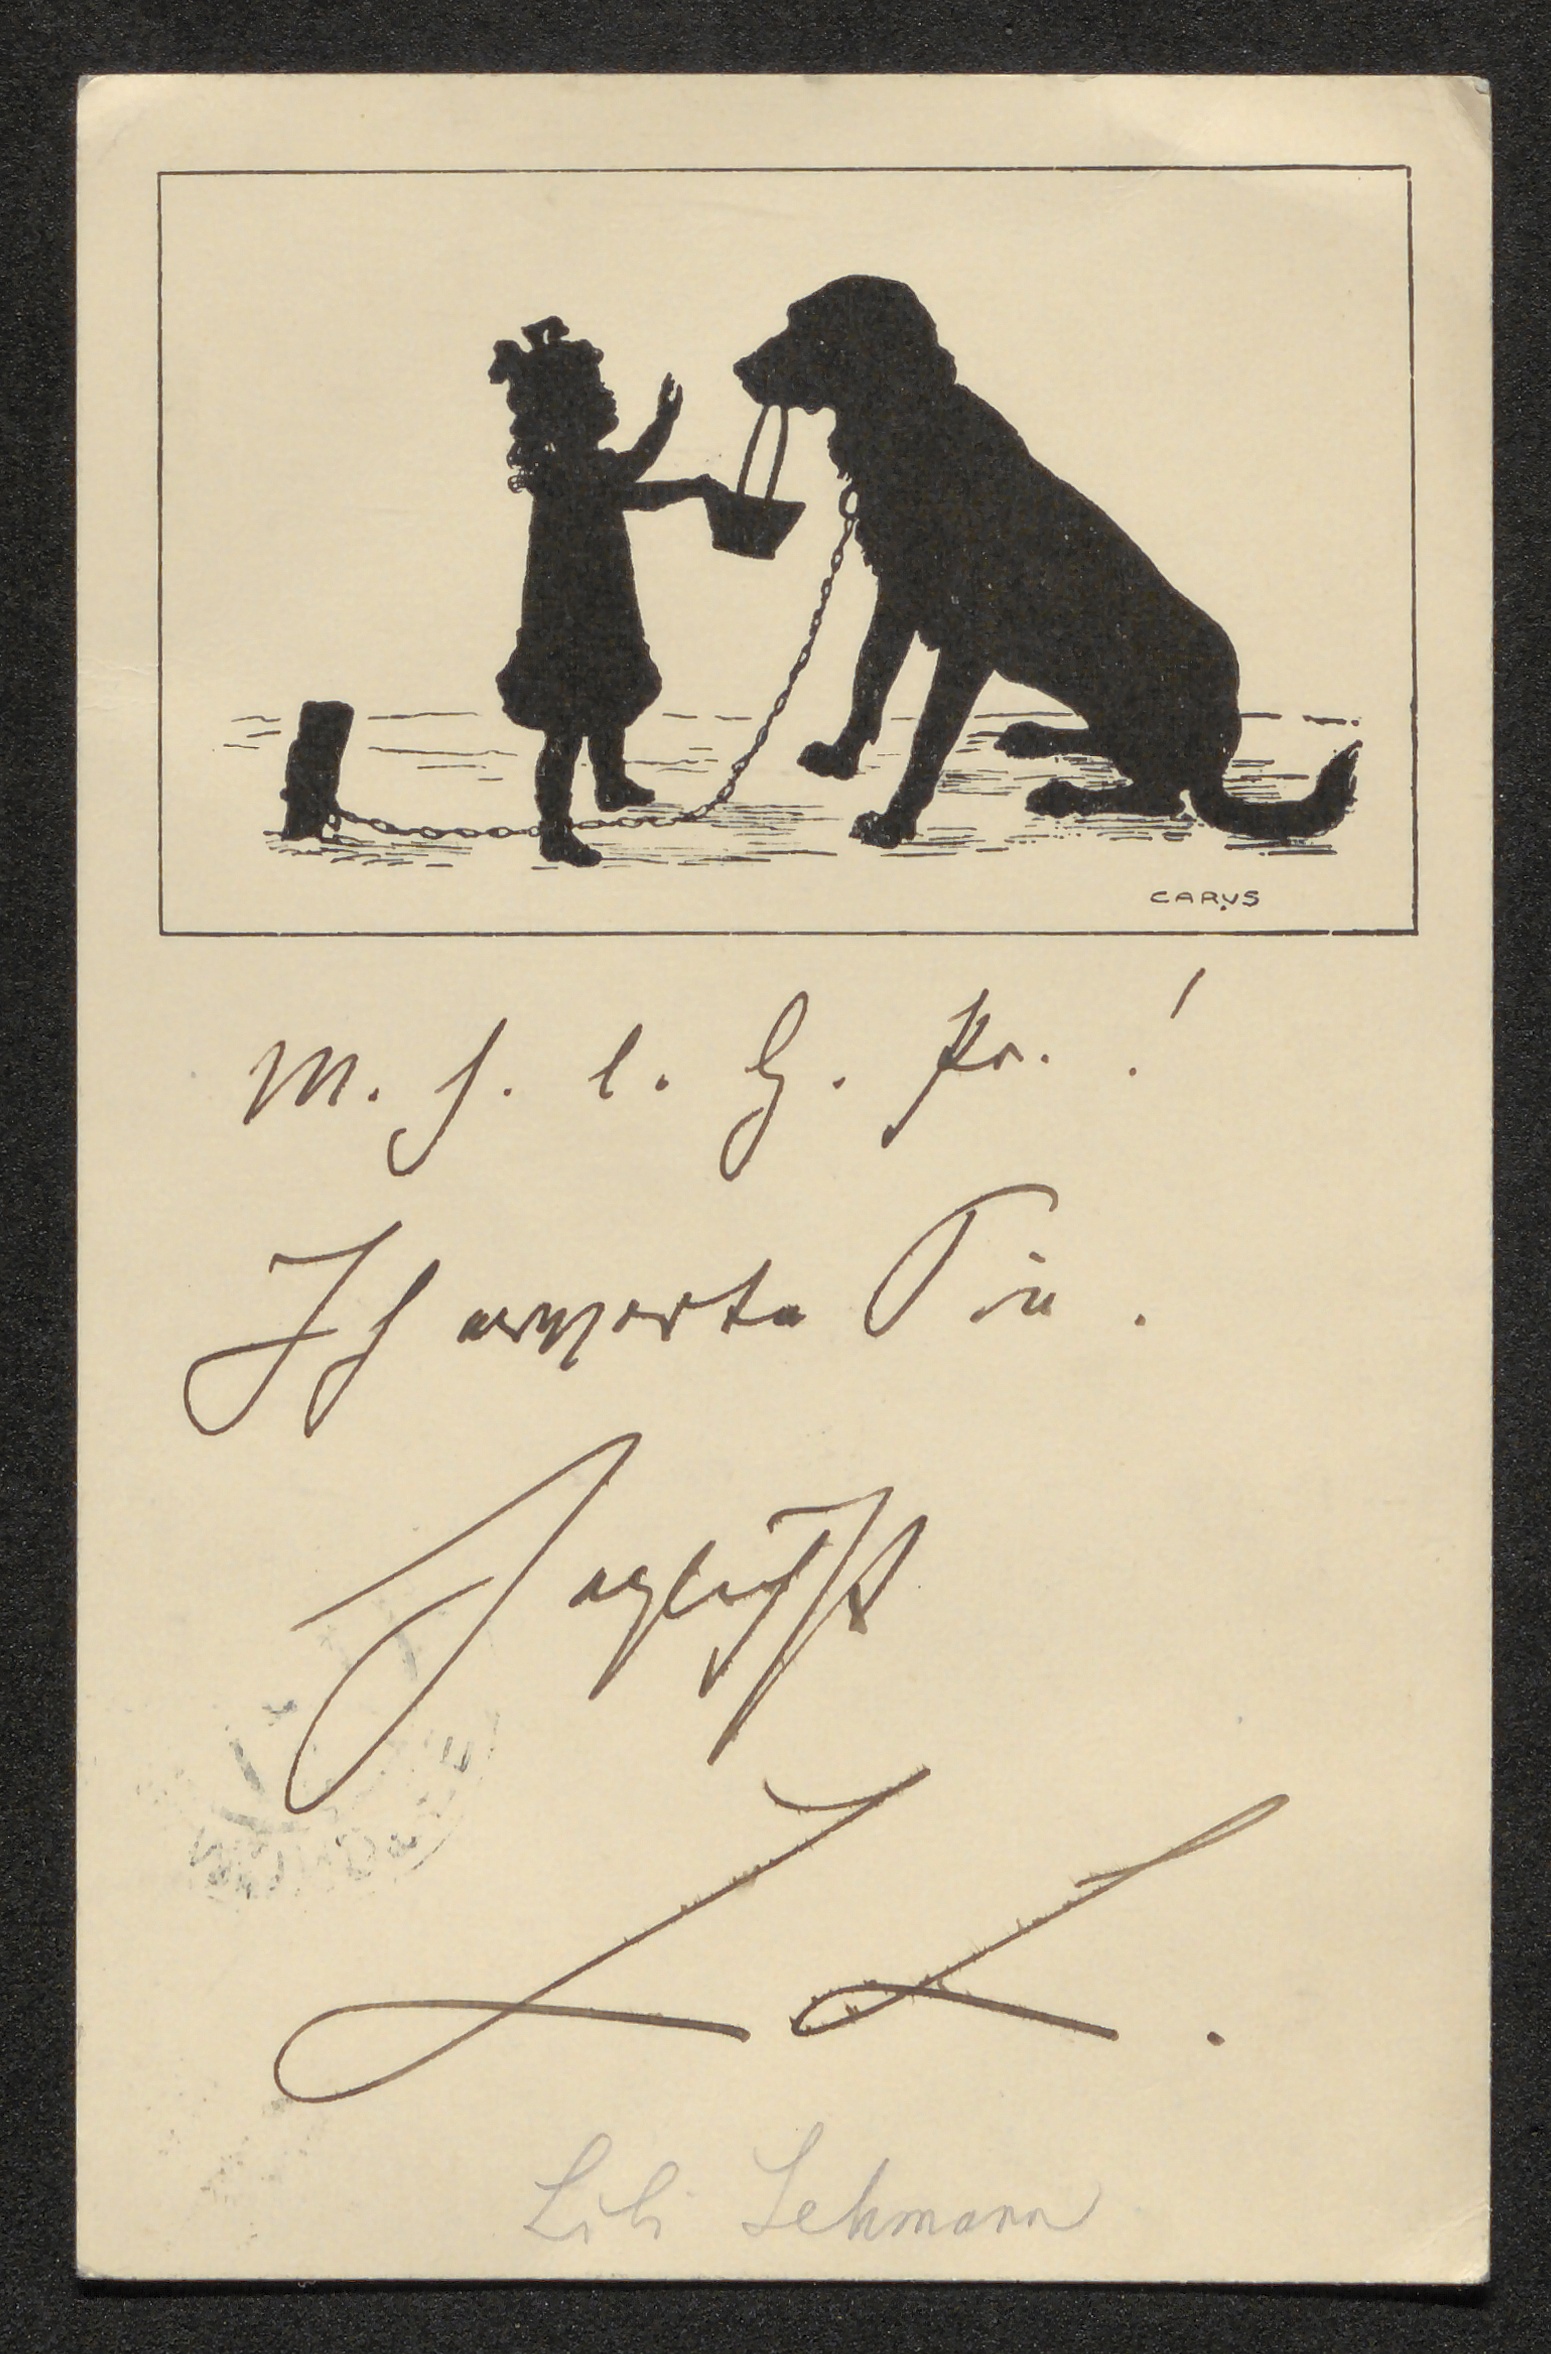 CARUS
M. h. l. H. Pr.!
Ich erwarte Sie.
Herzlichst
LL.
Lili Lehmann